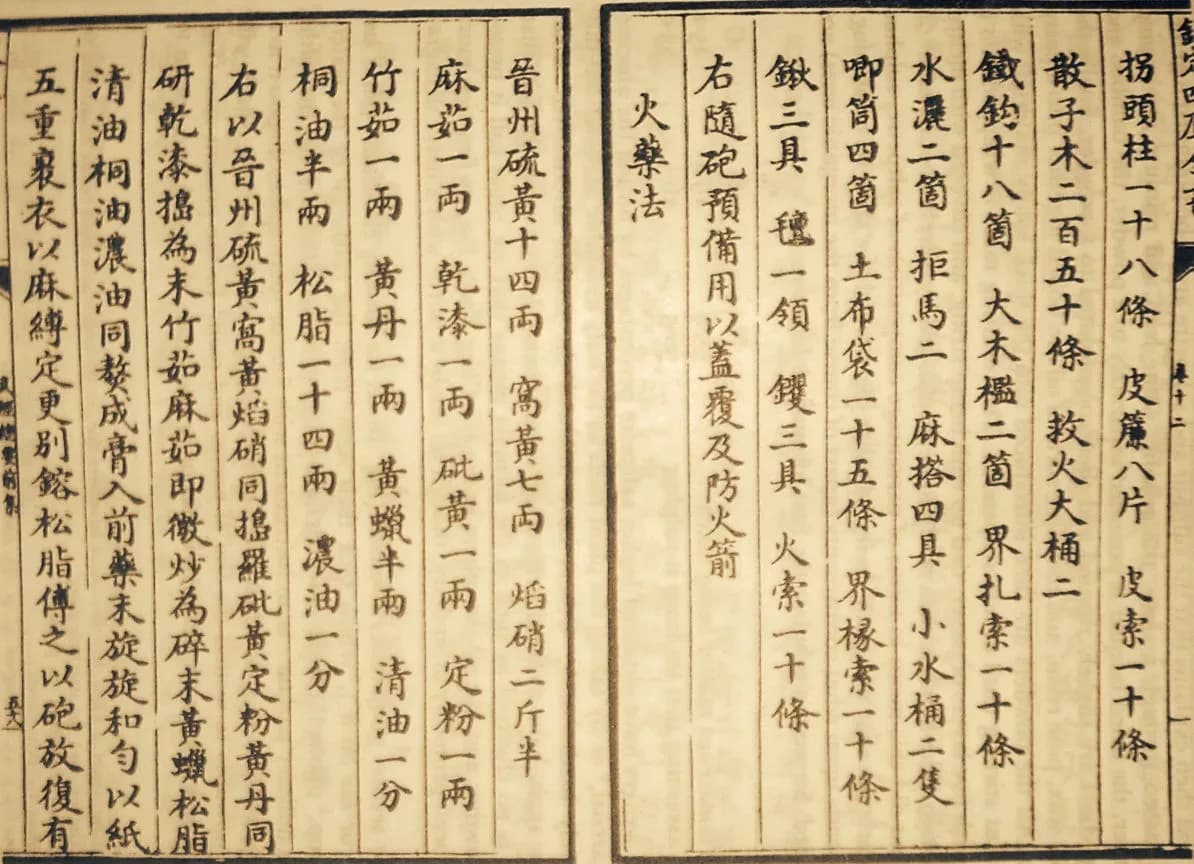 拐頭柱一十八條　皮簾八片　皮索一十條
散子木二百五十條　救火大桶二
鐵鈎十八箇　大木檻二箇　界扎索一十條
水濹二箇　拒馬二　麻搭四具　小水桶二隻
唧筒四箇　土布袋一十五條　界椽索一十條
鍬三具　氊一領　钁三具　火索一十條
右隨砲預備用以蓋覆及防火箭
火藥法
晉州硫黃十四兩　窩黃七兩　焰硝二斤半
麻茹一兩　乾漆一兩　砒黃一兩　定粉一兩
竹茹一兩　黃丹一兩　黃蠟半兩　清油一分
桐油半兩　松脂一十四兩　濃油一分
右以晉州硫黃窩黃焰硝同搗羅砒黃定粉黃丹同
研乾漆搗為末竹茹麻茹即微炒為碎末黃蠟松脂
清油桐油濃油同熬成膏入前藥末旋旋和勻以紙
五重裹衣以麻縛定更別鎔松脂傅之以砲放復有
卷十二